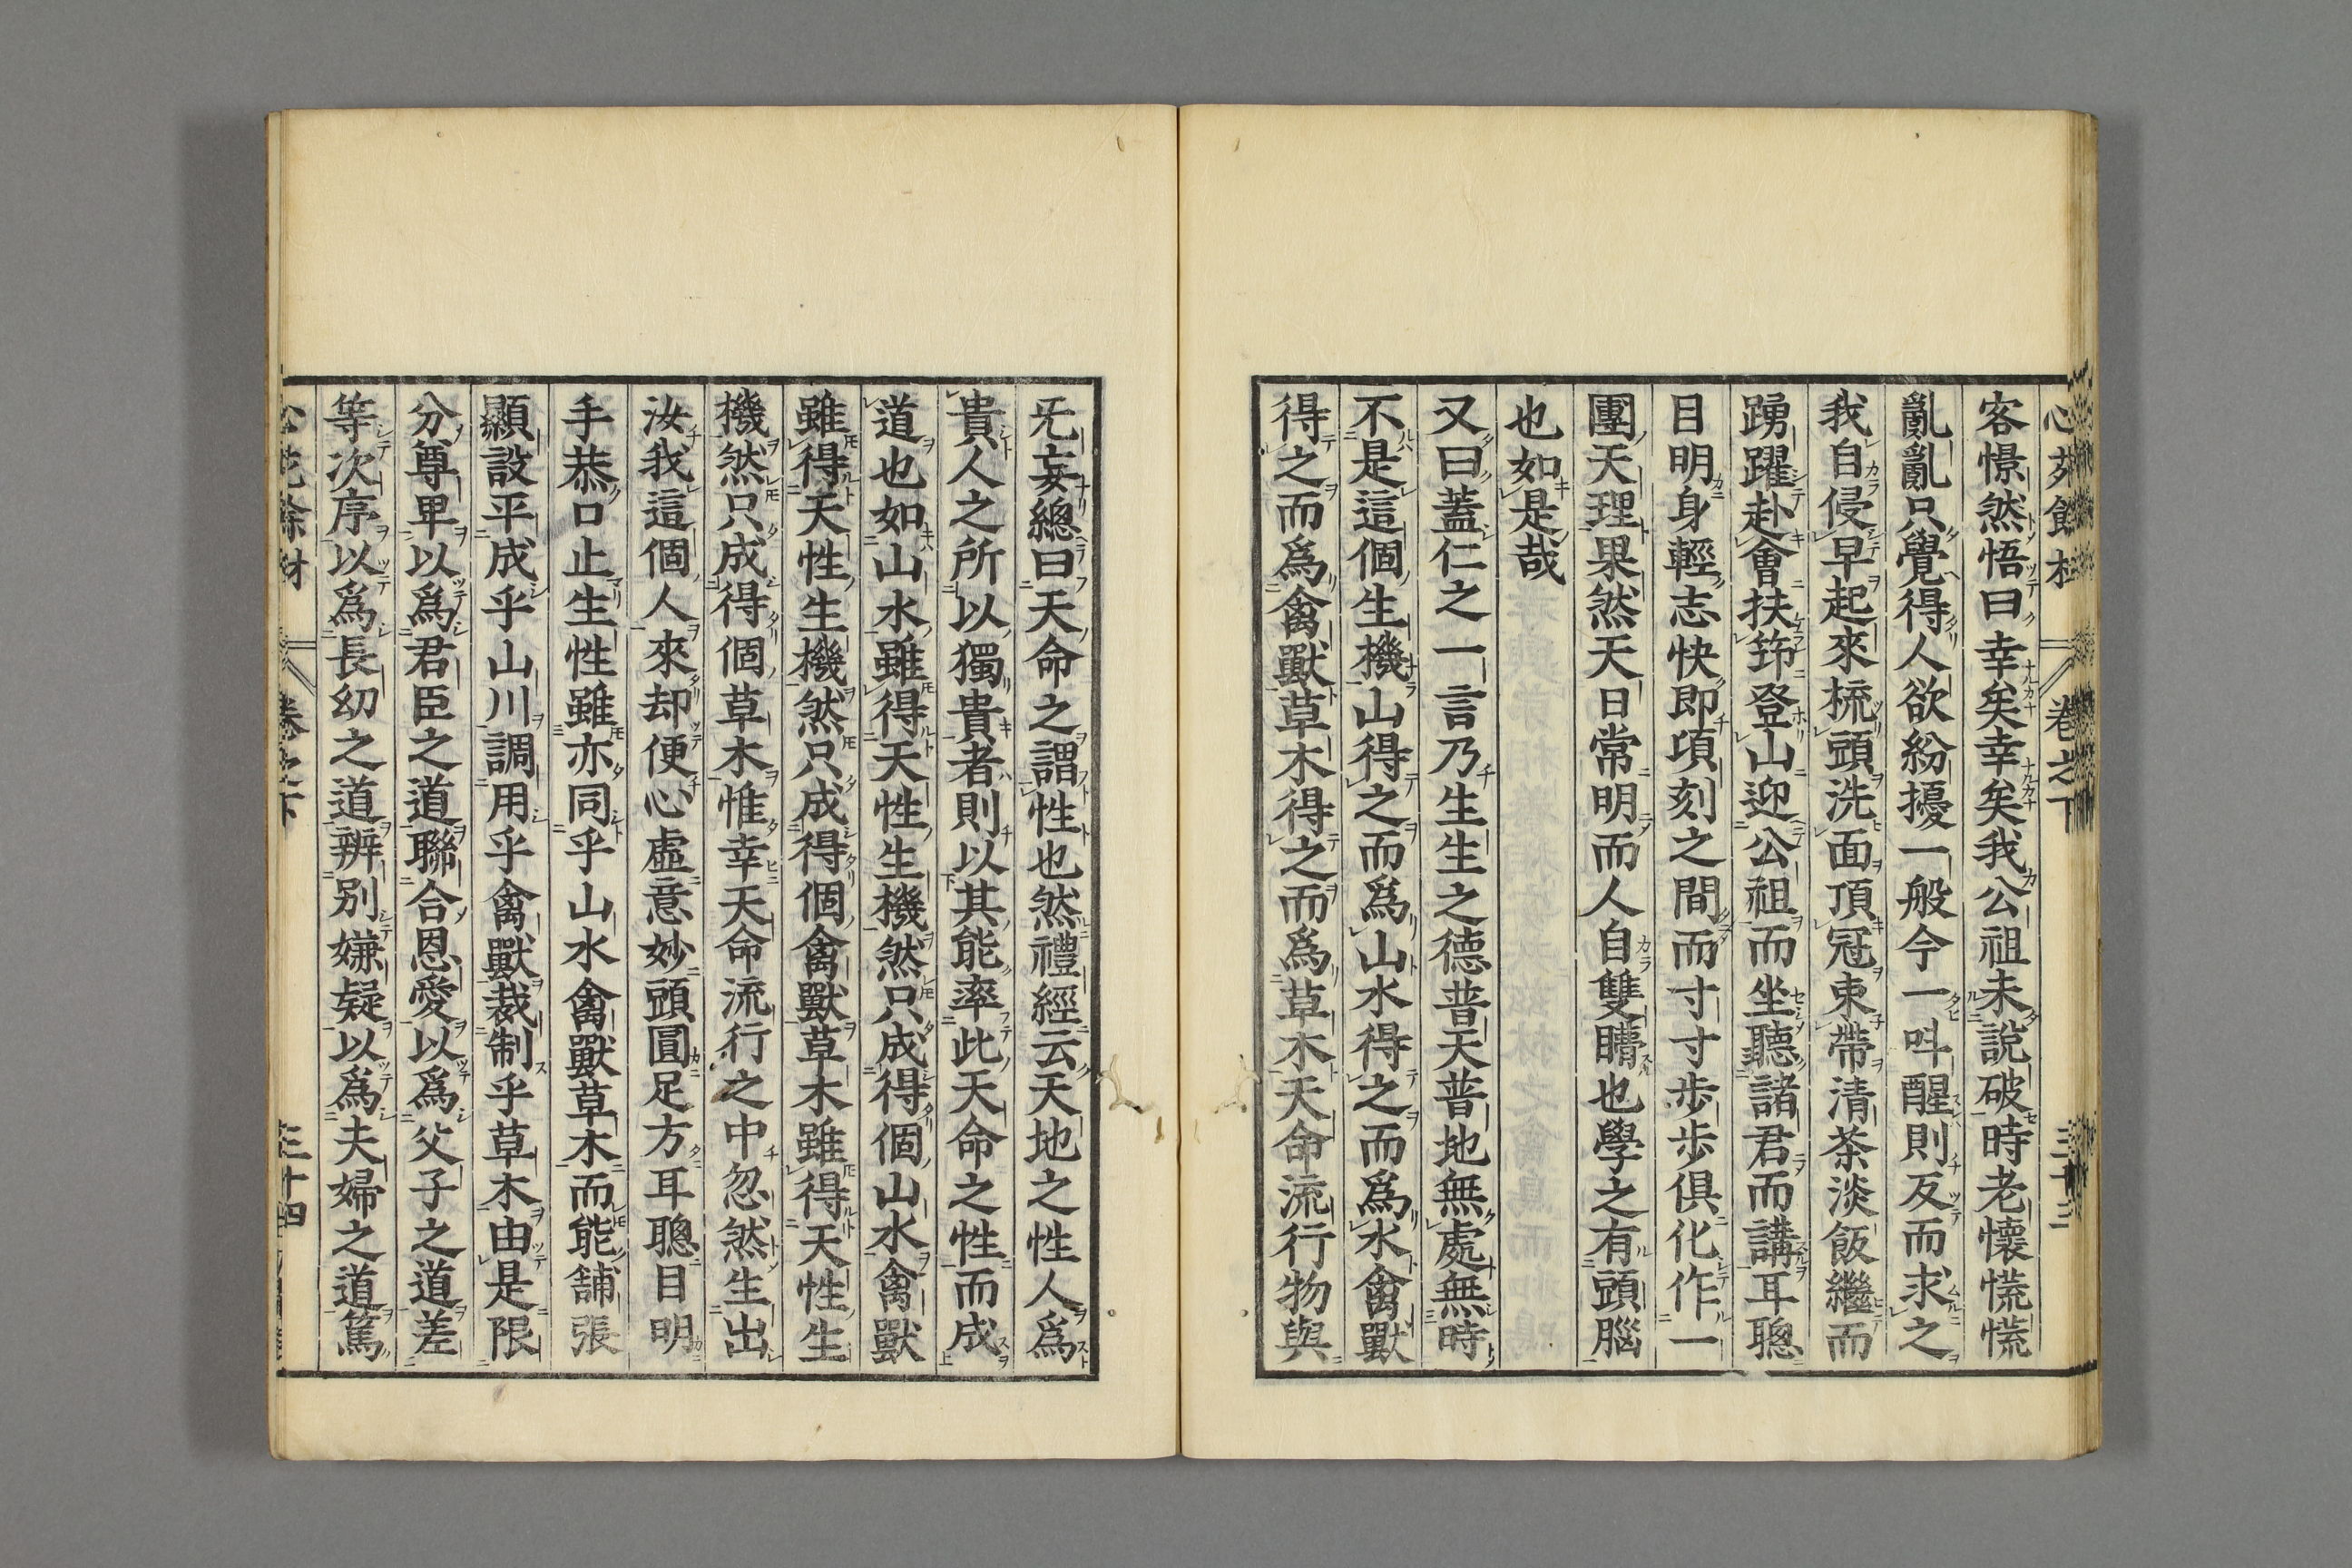 客憬然悟曰幸矣幸矣我公祖未說破時老懷慌慌
亂亂只覺得人欲紛擾一般今一呌醒則反而求之
我自侵早起來梳頭洗面頂冠束帶清茶淡飯繼而
踴躍赴會扶筇登山迎公祖而坐聽諸君而講耳聰
目明身輕志快即項刻之間而寸寸步步俱化作一
團天理果然天日常明而人自雙瞎也學之有頭腦
也如是哉
又曰蓋仁之一言乃生生之德普天普地無處無時
不是這個生機山得之而爲山水得之而爲水禽獸
得之而爲禽獸草木得之而爲草木天命流行物與
旡妄總曰天命之謂性也然禮經云天地之性人爲
貴人之所以獨貴者則以其能率此天命之性而成
道也如山水雖得天性生機然只成得個山水禽獸
雖得天性生機然只成得個禽獸草木雖得天性生
機然只成得個草木惟幸天命流行之中忽然生出
汝我這個人來却便心虛意妙頭圓足方耳聰目明
手恭口止生性雖亦同乎山水禽獸草木而能舗張
顯設平成乎山川調用乎禽獸裁制乎草木由是限
分尊卑以爲君臣之道聯合恩愛以爲父子之道差
等次序以爲長幼之道辨別嫌疑以爲夫婦之道篤
卷之下
三十四
卷之下
三十三